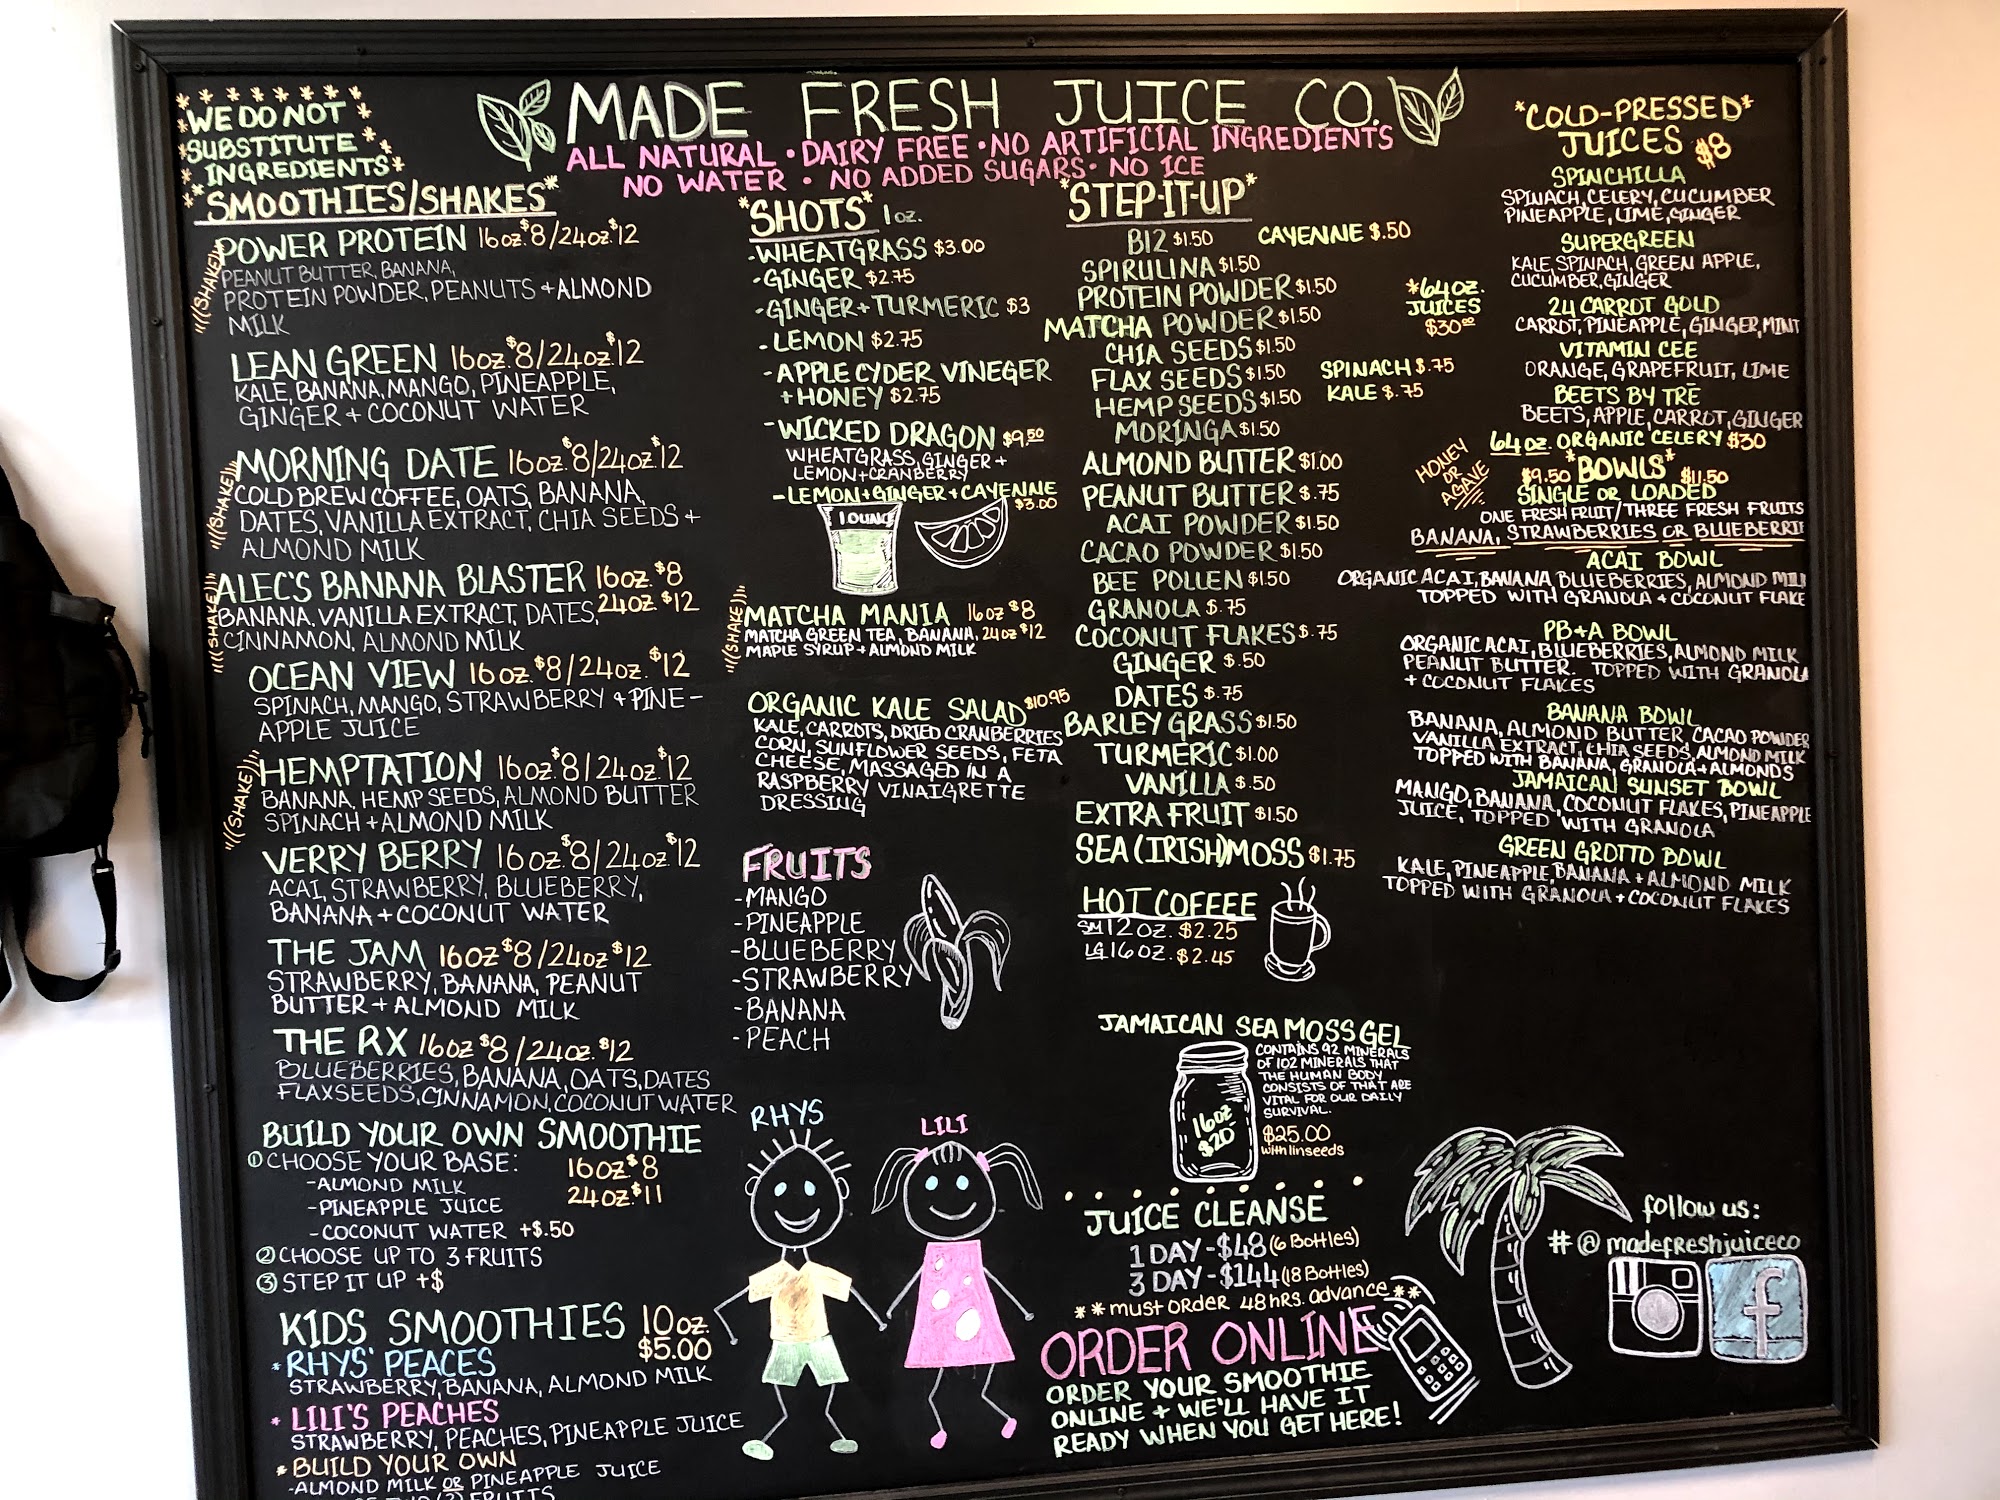 MADE FRESH JUICE CO.
ALL NATURAL • DAIRY FREE • NO ARTIFICIAL INGREDIENTS
NO WATER • NO ADDED SUGARS • NO ICE
*WE DO NOT
*SUBSTITUTE*
*INGREDIENTS*
*SMOOTHIES/SHAKES*
((SHAKE))
POWER PROTEIN 16oz. $8/24oz. $12
PEANUT BUTTER, BANANA,
PROTEIN POWDER, PEANUTS + ALMOND
MILK
LEAN GREEN 16oz. $8/24oz. $12
KALE, BANANA, MANGO, PINEAPPLE,
GINGER + COCONUT WATER
((SHAKE))
MORNING DATE 16oz. $8/24oz. $12
COLD BREW COFFEE, OATS, BANANA,
DATES, VANILLA EXTRACT, CHIA SEEDS +
ALMOND MILK
((SHAKE))
ALEC'S BANANA BLASTER 16oz. $8
24oz. $12
BANANA, VANILLA EXTRACT, DATES,
CINNAMON, ALMOND MILK
OCEAN VIEW 16oz. $8/24oz. $12
SPINACH, MANGO, STRAWBERRY + PINE-
APPLE JUICE
((SHAKE))
HEMPTATION 16oz. $8/24oz. $12
BANANA, HEMP SEEDS, ALMOND BUTTER
SPINACH + ALMOND MILK
VERRY BERRY 16oz. $8/24oz. $12
ACAI, STRAWBERRY, BLUEBERRY,
BANANA + COCONUT WATER
THE JAM 16oz $8/24oz $12
STRAWBERRY, BANANA, PEANUT
BUTTER + ALMOND MILK
THE RX 16oz $8/24oz. $12
BLUEBERRIES, BANANA, OATS, DATES
FLAXSEEDS, CINNAMON, COCONUT WATER
BUILD YOUR OWN SMOOTHIE
① CHOOSE YOUR BASE: 16oz $8
-ALMOND MILK 24oz. $11
-PINEAPPLE JUICE
-COCONUT WATER +$.50
② CHOOSE UP TO 3 FRUITS
③ STEP IT UP +$
KIDS SMOOTHIES 10oz.
$5.00
*RHYS' PEACES
STRAWBERRY, BANANA, ALMOND MILK
*LILI'S PEACHES
STRAWBERRY, PEACHES, PINEAPPLE JUICE
*BUILD YOUR OWN
-ALMOND MILK OR PINEAPPLE JUICE
FRUITS
*SHOTS* 1oz.
-WHEATGRASS $3.00
-GINGER $2.75
-GINGER + TURMERIC $3
-LEMON $2.75
-APPLE CYDER VINEGER
+ HONEY $2.75
-WICKED DRAGON $9.50
WHEATGRASS, GINGER +
LEMON + CRANBERRY
-LEMON + GINGER + CAYENNE
$3.00
1 OUNCE
((SHAKE))
MATCHA MANIA 16oz $8
MATCHA GREEN TEA, BANANA, 24oz $12
MAPLE SYRUP + ALMOND MILK
ORGANIC KALE SALAD $10.95
KALE, CARROTS, DRIED CRANBERRIES
CORN, SUNFLOWER SEEDS, FETA
CHEESE, MASSAGED IN A
RASPBERRY VINAIGRETTE
DRESSING
FRUITS
-MANGO
-PINEAPPLE
-BLUEBERRY
-STRAWBERRY
-BANANA
-PEACH
RHYS
LILI
*STEP-IT-UP*
B12 $1.50 CAYENNE $.50
SPIRULINA $1.50
PROTEIN POWDER $1.50
MATCHA POWDER $1.50
CHIA SEEDS $1.50
FLAX SEEDS $1.50 SPINACH $.75
HEMP SEEDS $1.50 KALE $.75
MORINGA $1.50
ALMOND BUTTER $1.00
PEANUT BUTTER $.75
ACAI POWDER $1.50
CACAO POWDER $1.50
BEE POLLEN $1.50
GRANOLA $.75
COCONUT FLAKES $.75
GINGER $.50
DATES $.75
BARLEY GRASS $1.50
TURMERIC $1.00
VANILLA $.50
EXTRA FRUIT $1.50
SEA (IRISH) MOSS $1.75
HOT COFFEE
SM 12oz. $2.25
LG 16oz. $2.45
JAMAICAN SEA MOSS GEL
CONTAINS 92 MINERALS
OF 102 MINERALS THAT
THE HUMAN BODY
CONSISTS OF THAT ARE
VITAL FOR OUR DAILY
SURVIVAL.
16oz
$20
$25.00
with linseeds
JUICE CLEANSE
1 DAY - $48 (6 Bottles)
3 DAY - $144 (18 Bottles)
**must order 48 hrs. advance**
ORDER ONLINE
ORDER YOUR SMOOTHIE
ONLINE + WE'LL HAVE IT
READY WHEN YOU GET HERE!
*64oz.
JUICES
$30.00
*COLD-PRESSED*
JUICES $8
SPINCHILLA
SPINACH, CELERY, CUCUMBER
PINEAPPLE, LIME, GINGER
SUPERGREEN
KALE, SPINACH, GREEN APPLE,
CUCUMBER, GINGER
24 CARROT GOLD
CARROT, PINEAPPLE, GINGER, MINT
VITAMIN CEE
ORANGE, GRAPEFRUIT, LIME
BEETS BY TRĒ
BEETS, APPLE, CARROT, GINGER
64oz. ORGANIC CELERY $30
HONEY
OR
AGAVE
$9.50 *BOWLS* $11.50
SINGLE OR LOADED
ONE FRESH FRUIT/THREE FRESH FRUITS
BANANA, STRAWBERRIES OR BLUEBERRIE
ACAI BOWL
ORGANIC ACAI, BANANA, BLUEBERRIES, ALMOND MILK
TOPPED WITH GRANOLA + COCONUT FLAKE
PB+A BOWL
ORGANIC ACAI, BLUEBERRIES, ALMOND MILK
PEANUT BUTTER. TOPPED WITH GRANOLA
+ COCONUT FLAKES
BANANA BOWL
BANANA, ALMOND BUTTER, CACAO POWDER
VANILLA EXTRACT, CHIA SEEDS, ALMOND MILK
TOPPED WITH BANANA, GRANOLA + ALMONDS
JAMAICAN SUNSET BOWL
MANGO, BANANA, COCONUT FLAKES, PINEAPPLE
JUICE, TOPPED WITH GRANOLA
GREEN GROTTO BOWL
KALE, PINEAPPLE, BANANA + ALMOND MILK
TOPPED WITH GRANOLA + COCONUT FLAKES
follow us:
# @ madefreshjuiceco
f